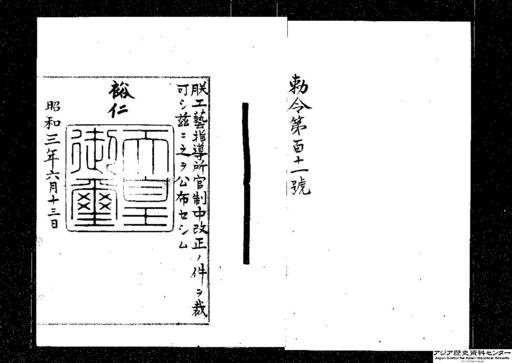 勅令第百十一號
朕工藝指導所官制中改正ノ件ヲ裁
可シ茲ニ之ヲ公布セシム
裕仁
天皇
御璽
昭和三年六月十三日
アジア歴史資料センター
Japan Center for Asian Historical Records